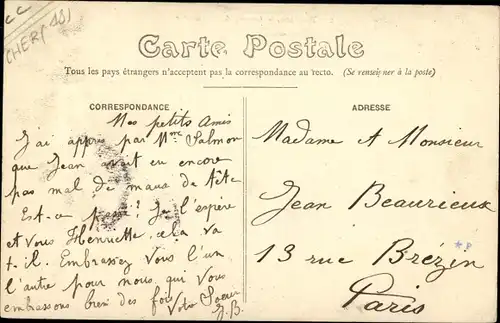 CC
CHER (18)
Carte Postale
Tous les pays étrangers n'acceptent pas la correspondance au recto. (Se renseigner à la poste)
CORRESPONDANCE
Mes petits Amis
J'ai appris par Mme Salmon
que Jean avait eu encore
pas mal de maux de tête
Est-ce passé? Je l'espère
et vous Henriette, cela va
t-il. Embrassez vous l'un
l'autre pour nous qui vous
embrassons bien des fois
Votre Soeur
J.B.
ADRESSE
Madame et Monsieur
Jean Beaurieux
13 rue Brézin
Paris